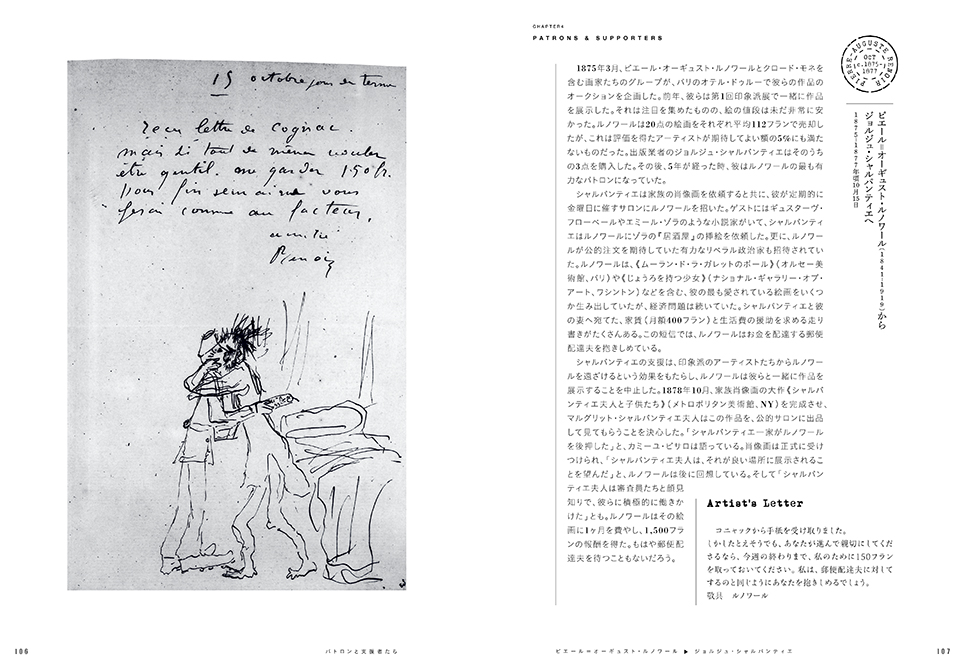 15 octobre jour de terme
reçu lettre de cognac.
mais si tout de même vouler
être gentil. me garder 150 fr.
pour fin semaine vous
ferai comme au facteur.
amitié
Renoir
106
パトロンと支援者たち
CHAPTER4
PATRONS & SUPPORTERS
PIERRE-AUGUSTE RENOIR
OCT
c.1875-
1877
ピエール=オーギュスト・ルノワール(1841-1919)から
ジョルジュ・シャルパンティエへ
1875-1877年頃10月15日
1875年3月、ピエール・オーギュスト・ルノワールとクロード・モネを
含む画家たちのグループが、パリのオテル・ドゥルーで彼らの作品の
オークションを企画した。前年、彼らは第1回印象派展で一緒に作品
を展示した。それは注目を集めたものの、絵の値段は未だ非常に安
かった。ルノワールは20点の絵画をそれぞれ平均112フランで売却し
たが、これは評価を得たアーティストが期待してよい額の5%にも満た
ないものだった。出版業者のジョルジュ・シャルパンティエはそのうち
の3点を購入した。その後、5年が経った時、彼はルノワールの最も有
力なパトロンになっていた。
シャルパンティエは家族の肖像画を依頼すると共に、彼が定期的に
金曜日に催すサロンにルノワールを招いた。ゲストにはギュスターヴ・
フローベールやエミール・ゾラのような小説家がいて、シャルパンティ
エはルノワールにゾラの『居酒屋』の挿絵を依頼した。更に、ルノワー
ルが公的注文を期待していた有力なリベラル政治家も招待されてい
た。ルノワールは、《ムーラン・ド・ラ・ガレットのボール》(オルセー美
術館、パリ)や《じょうろを持つ少女》(ナショナル・ギャラリー・オブ・
アート、ワシントン)などを含む、彼の最も愛されている絵画をいくつ
か生み出していたが、経済問題は続いていた。シャルパンティエと彼
の妻へ宛てた、家賃(月額400フラン)と生活費の援助を求める走り
書きがたくさんある。この短信では、ルノワールはお金を配達する郵便
配達夫を抱きしめている。
シャルパンティエの支援は、印象派のアーティストたちからルノワー
ルを遠ざけるという効果をもたらし、ルノワールは彼らと一緒に作品を
展示することを中止した。1878年10月、家族肖像画の大作《シャルパ
ンティエ夫人と子供たち》(メトロポリタン美術館、NY)を完成させ、
マルグリット・シャルパンティエ夫人はこの作品を、公的サロンに出品
して見てもらうことを決心した。「シャルパンティエ一家がルノワール
を後押しした」と、カミーユ・ピサロは語っている。肖像画は正式に受け
つけられ、「シャルパンティエ夫人は、それが良い場所に展示されるこ
とを望んだ」と、ルノワールは後に回想している。そして「シャルパン
ティエ夫人は審査員たちと顔見
知りで、彼らに積極的に働きか
けた」とも。ルノワールはその絵
画に1ヶ月を費やし、1,500フラ
ンの報酬を得た。もはや郵便配
達夫を待つこともないだろう。
Artist's Letter
コニャックから手紙を受け取りました。
しかしたとえそうでも、あなたが進んで親切にしてくだ
さるなら、今週の終わりまで、私のために150フラン
を取っておいてください。私は、郵便配達夫に対して
するのと同じようにあなたを抱きしめるでしょう。
敬具 ルノワール
ピエール=オーギュスト・ルノワール ▶ ジョルジュ・シャルパンティエ
107